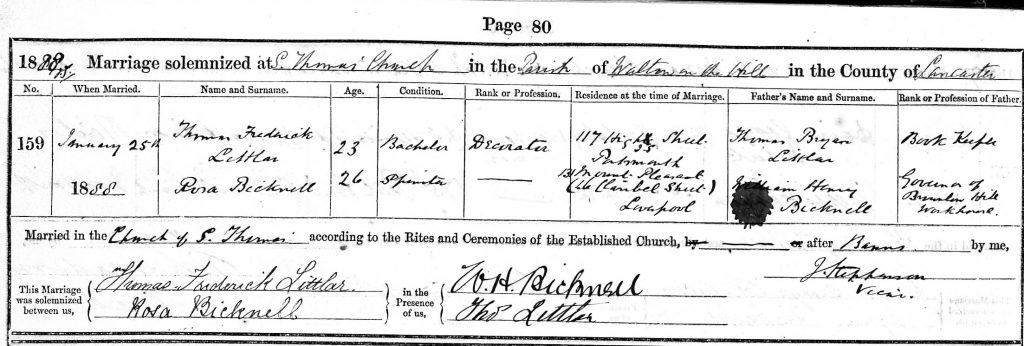 Page 80
1888. Marriage solemnized at S. Thomas' Church in the Parish of Walton on the Hill in the County of Lancaster
No. When Married. Name and Surname. Age. Condition. Rank or Profession. Residence at the time of Marriage. Father's Name and Surname. Rank or Profession of Father.
159 January 25th 1888 Thomas Frederick Littlar 23 Bachelor Decorator 117 High Street Portsmouth Thomas Bryan Littlar Book Keeper
Rosa Bicknell 26 Spinster —— 131 Mount Pleasant (46 Claribel Street) Liverpool William Henry Bicknell Governor of Brownlow Hill Workhouse.
Married in the Church of S. Thomas' according to the Rites and Ceremonies of the Established Church, by —— or after Banns by me,
J Stephenson
Vicar.
This Marriage was solemnized between us, Thomas Frederick Littlar. Rosa Bicknell in the Presence of us, W. H. Bicknell Thos Littlar